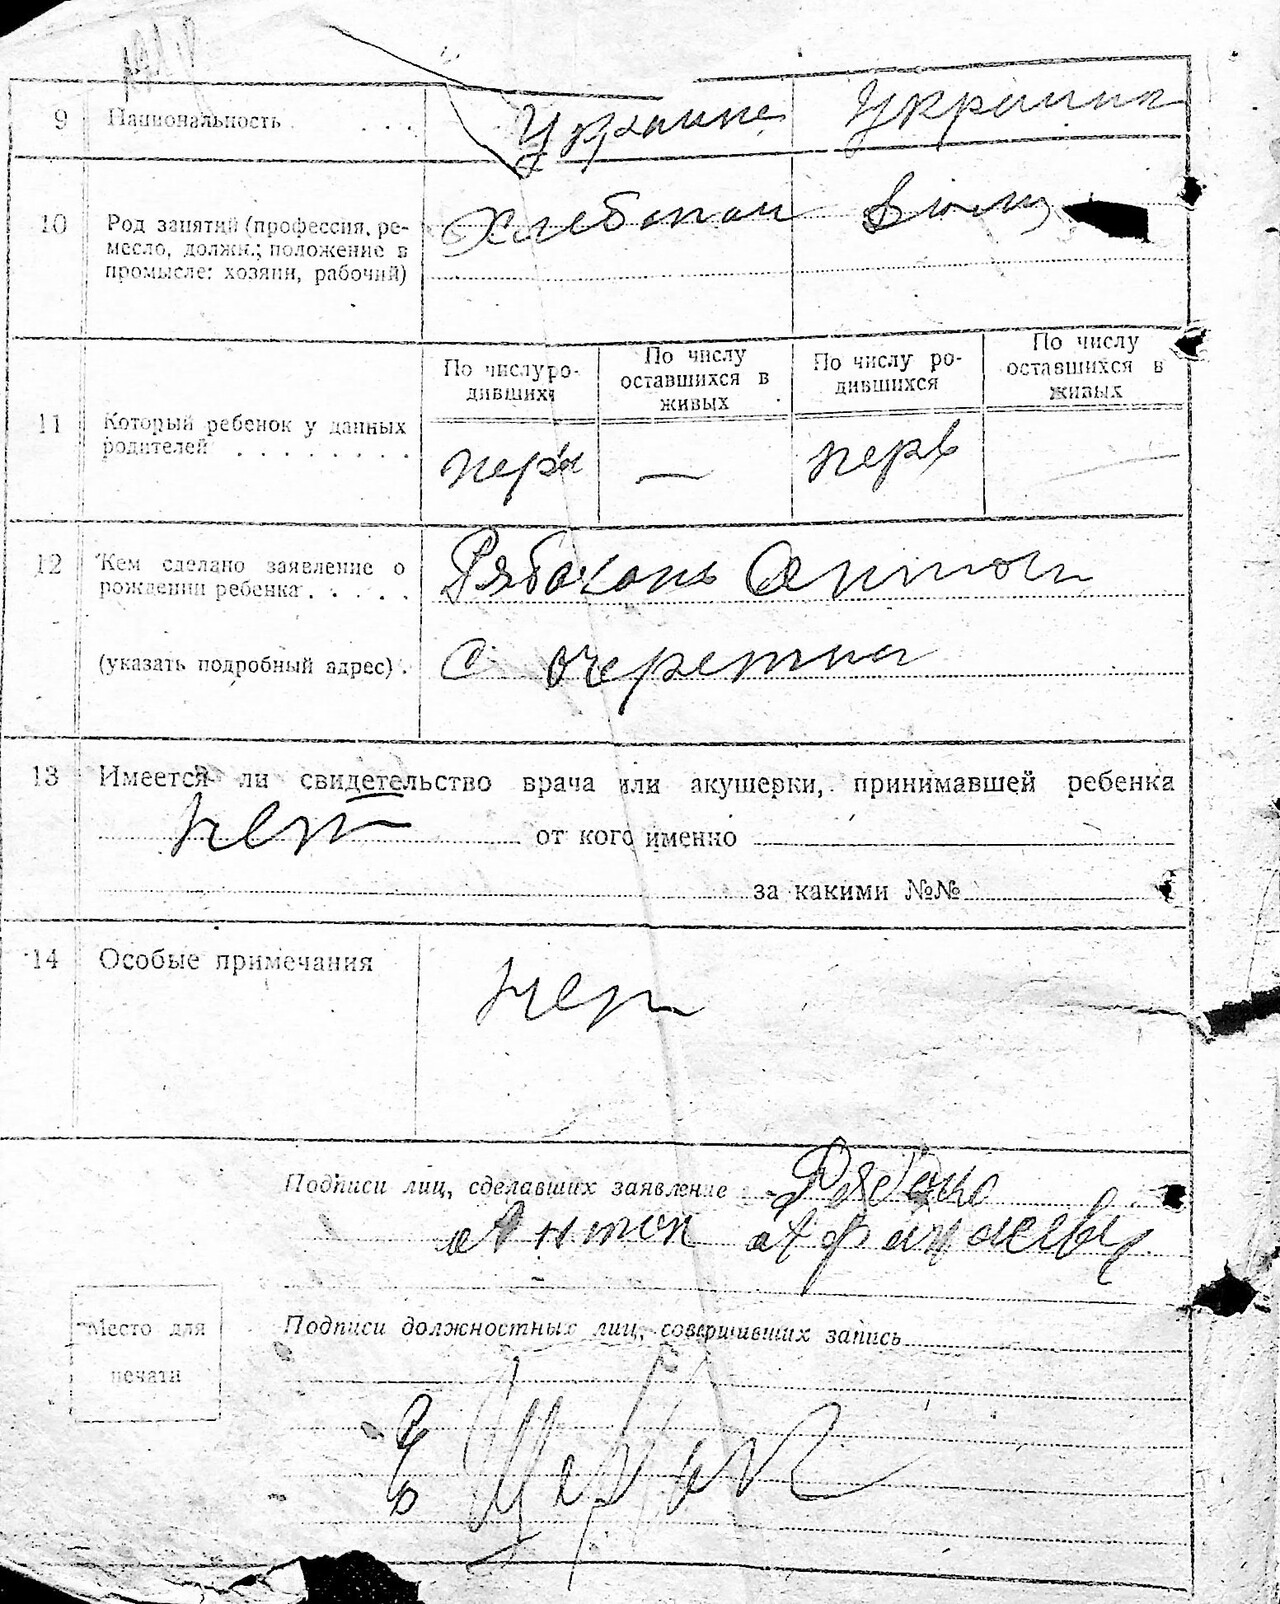 9 Национальность . . . . Украине Украинк
10 Род занятий (профессия, ре-
месло, должн.; положение в
промысле: хозяин, рабочий)
Хлебопаш
По числу ро-
дивших
По числу
оставшихся в
живых
По числу ро-
дившихся
По числу
оставшихся в
живых
11 Который ребенок у данных
родителей . . . . . . . .
перв — перв —
12 Кем сделано заявление о
рождении ребенка . . . . .
Рябоконь Антон
(указать подробный адрес) .
с очеретна
13 Имеется ли свидетельство врача или акушерки, принимавшей ребенка
нет от кого именно
за какими №№
14 Особые примечания нет
Подписи лиц, сделавших заявление Рябоко
Антон
Место для
печати
Подписи должностных лиц, совершивших запись